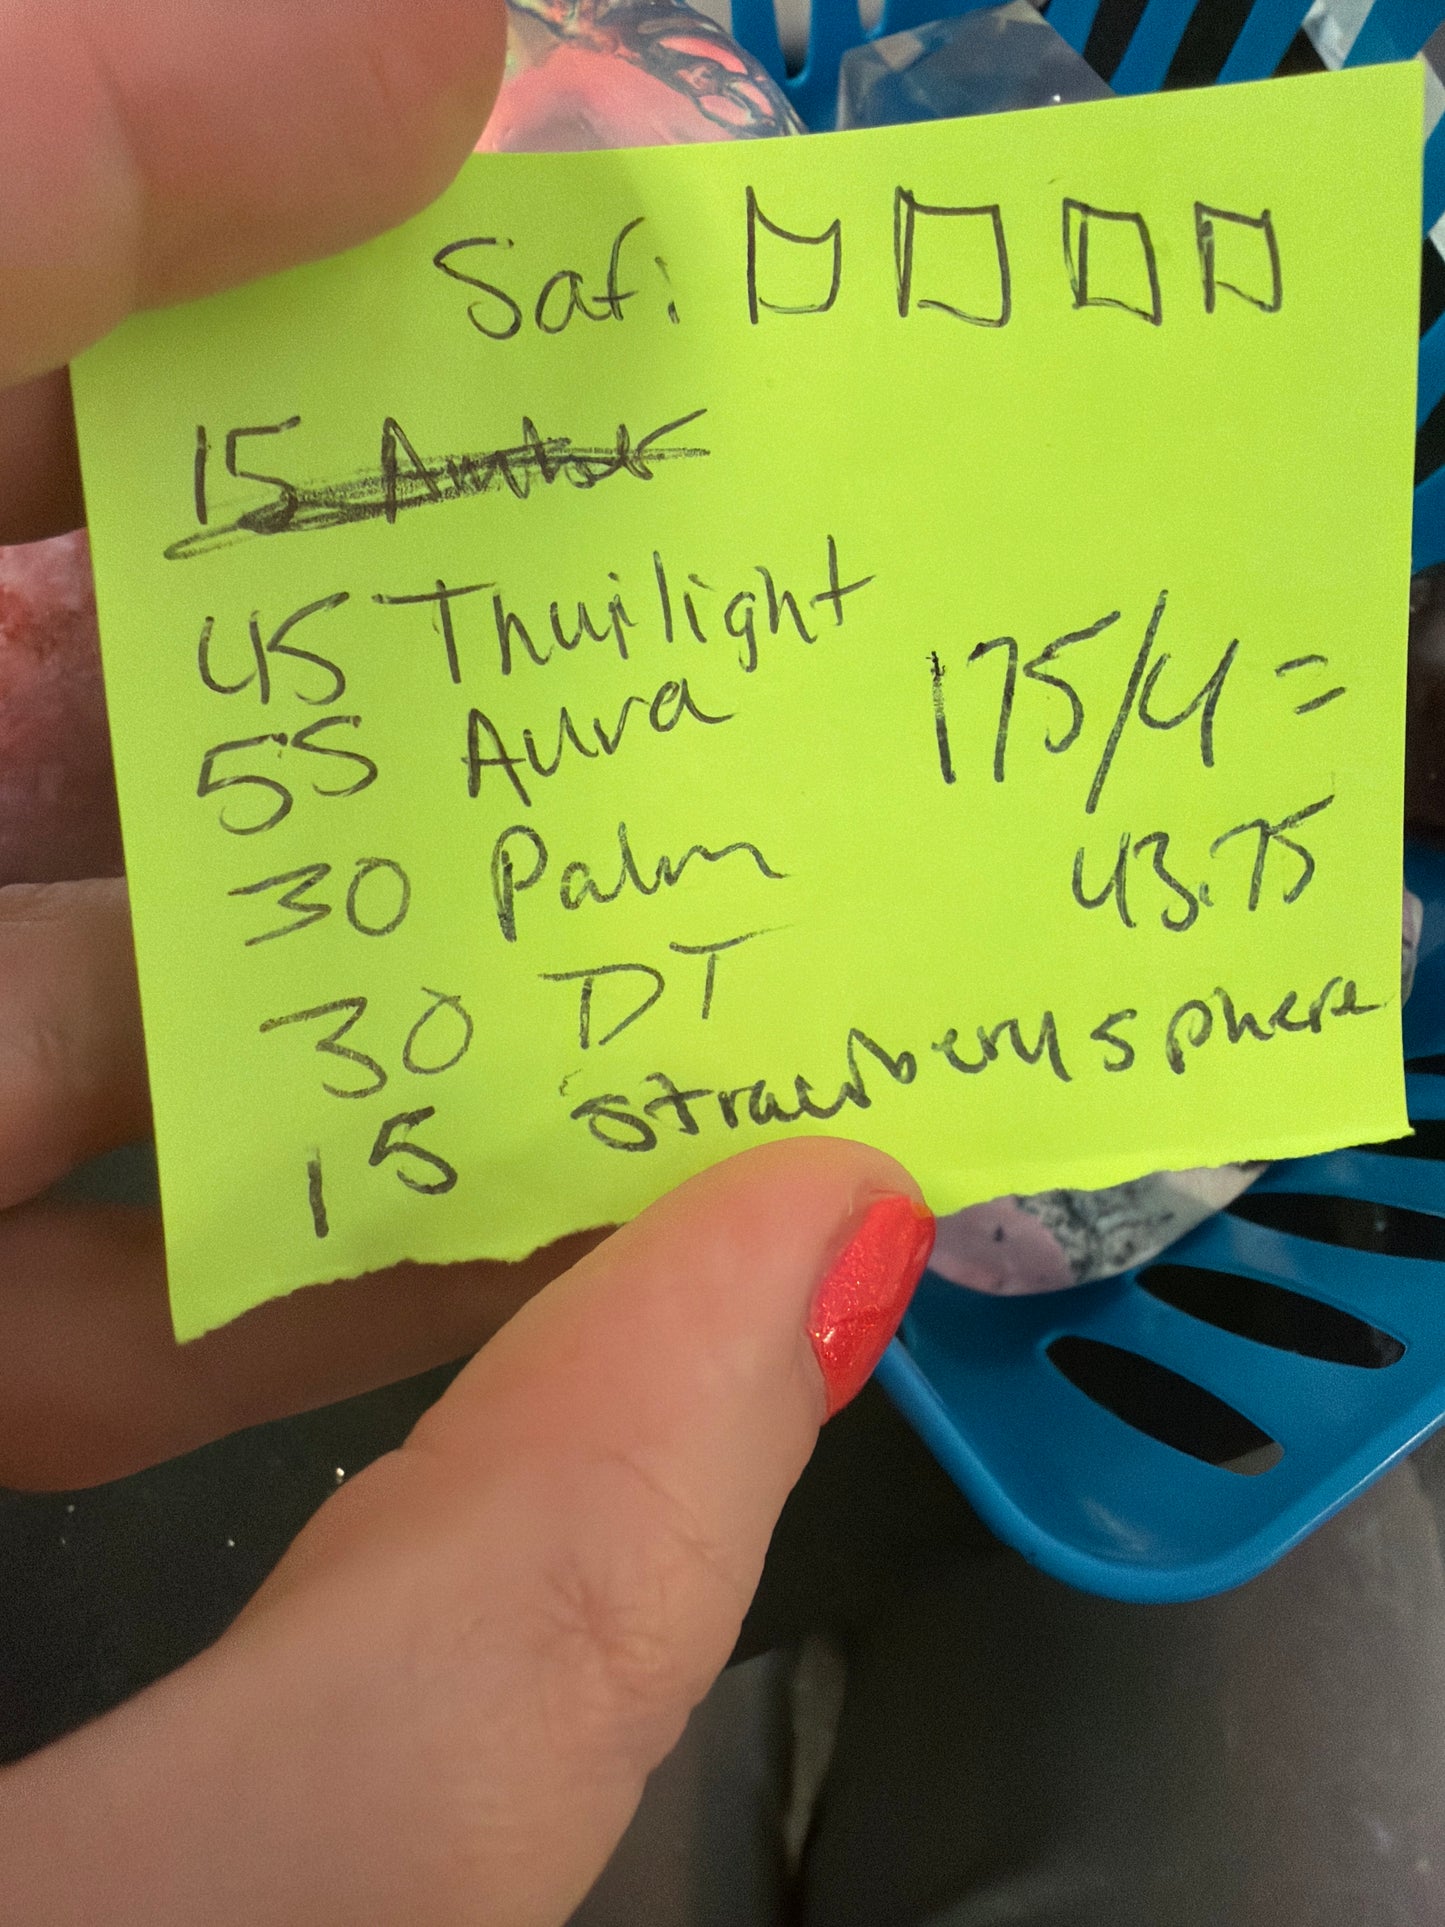 Saf:
15 Amber
45 Thwilight
55 Aura
175/4 =
43.75
30 Palm
30 DT
15 strawbery sphere